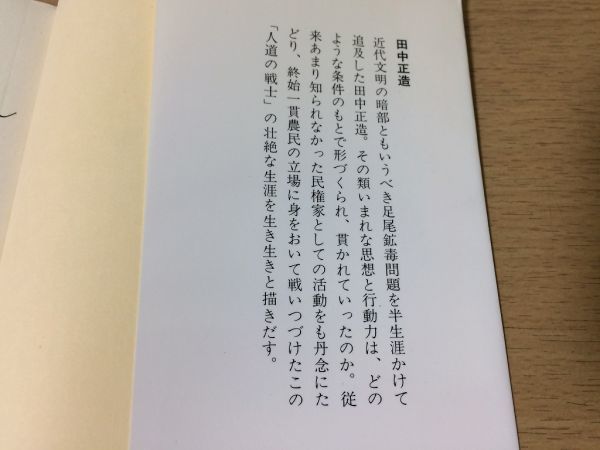 田中正造
近代文明の暗部ともいうべき足尾鉱毒問題を半生涯かけて
追及した田中正造。その類いまれな思想と行動力は、どの
ような条件のもとで形づくられ、貫かれていったのか。従
来あまり知られなかった民権家としての活動をも丹念にた
どり、終始一貫農民の立場に身をおいて戦いつづけたこの
「人道の戦士」の壮絶な生涯を生き生きと描きだす。